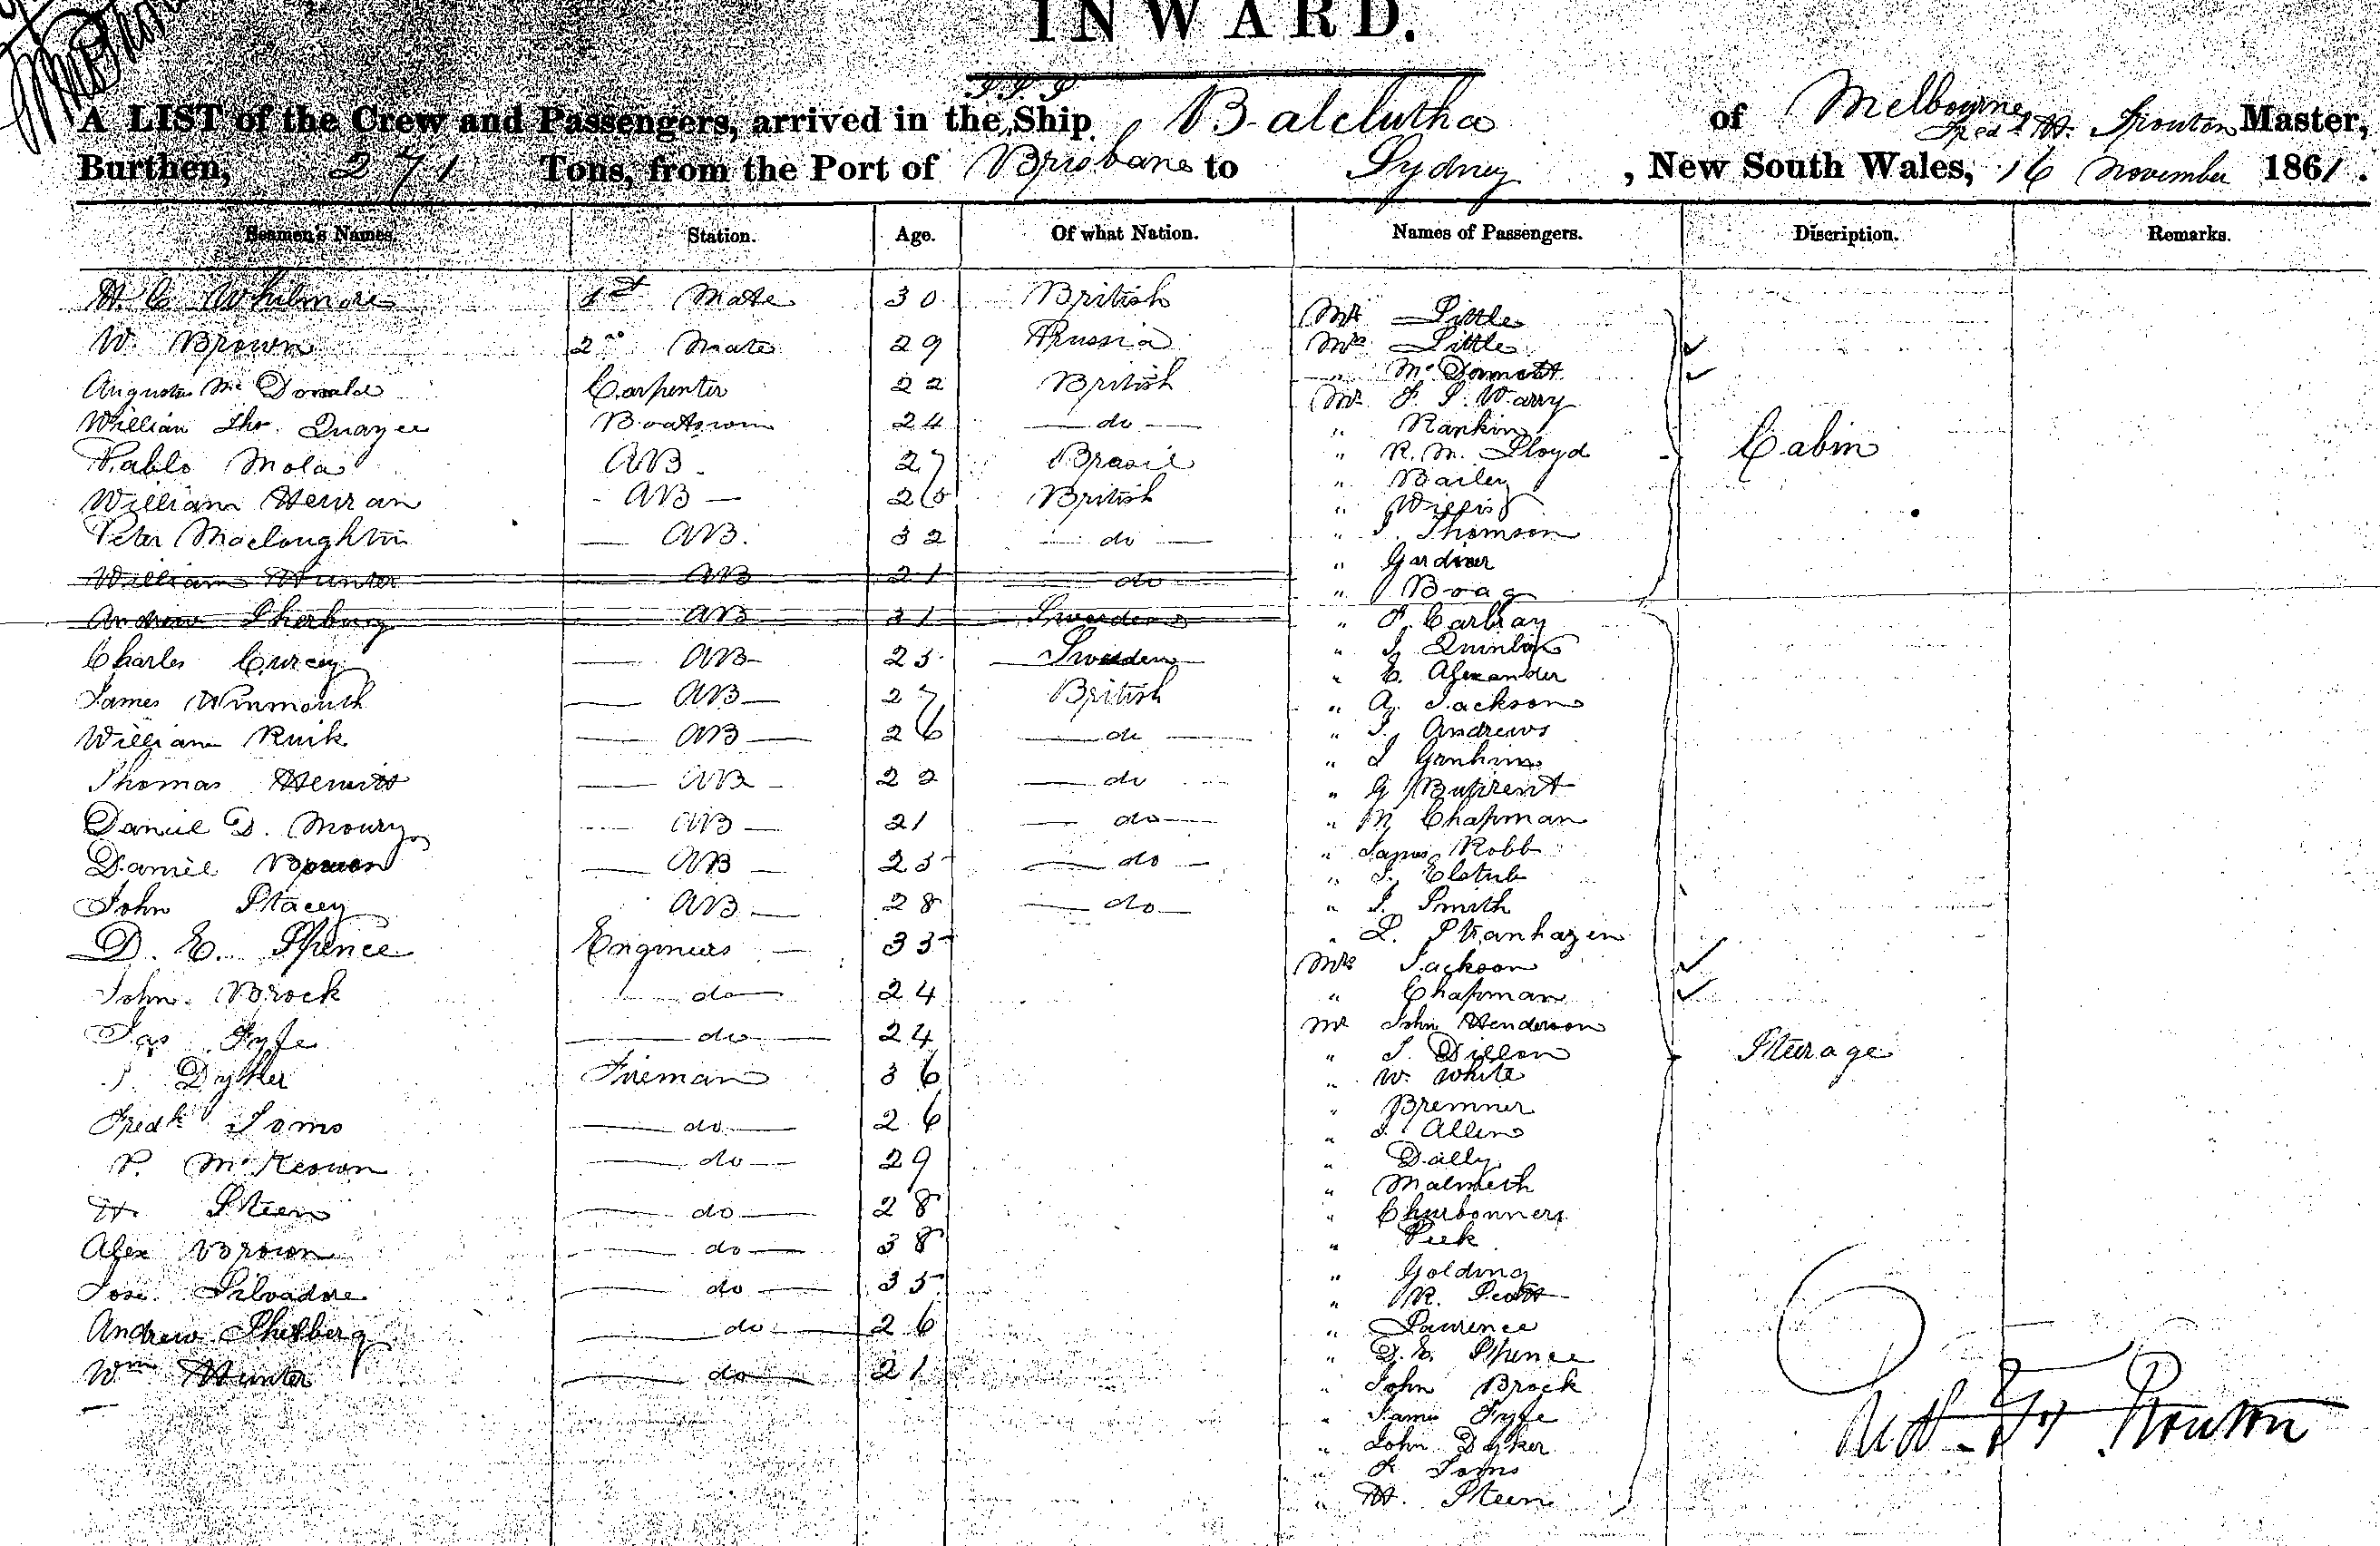 INWARD.
A LIST of the Crew and Passengers, arrived in the Ship Balclutha of Melbourne Master,
Burthen, 271 Tons, from the Port of Brisbane to Sydney, New South Wales, 16 November 1861.
Seamen's Names. Station. Age. Of what Nation. Names of Passengers. Discription. Remarks.
H. C. Whitmore 1st Mate 30 British
W. Brown 2nd Mate 29 Prussia
Augustus McDonald Carpenter 22 British
William Thos. Quayee Boatswain 24 do
Pablo Mola AB 27 Brasil
William Henran AB 26 British
Peter Macloughlin AB. 32 do
William Hunter AB 21 do
Andrew Sherburg AB 31 Sweden
Charles Curcey AB 25 Sweden
James Winmouth AB 27 British
William Ruik AB 26 do
Thomas Hewitt AB 22 do
Daniel D. Moury AB 21 do
Daniel AB 25 do
John Stacey AB 28 do
D. E. Spence Engineers 35
John Brock do 24
Jas Fyfe do 24
J. Dyker Fireman 36
Fredk Soms do 26
P. McKeown do 29
H. Steen do 28
Alex Brown do 38
Jose Silvadore do 35
Andrew Sherberg do 26
Wm Hunter do 21
Mr Little
Mrs Little
" McDermott
Mr F. S. Warry
" Rankin
" R. M. Lloyd
" Bailey
" Willis
" J. Thomson
" Gardiner
" Boag
Cabin
" F. Carbray
" J. Quinlan
" E. Alexander
" A. Jackson
" J. Andrews
" J
" G
" M Chapman
" James Robb
" J. Elstub
" J. Smith
" L. Stranhagen
Mrs Jackson
" Chapman
Mr John Henderson
" J. Dillon
" W. White
" Bremner
" J. Allen
" Dally
" Malmeth
" Charbonnery
" Peek
" Golding
" R. Scott
" Laurence
" D. E. Spence
" John Brock
" James Fyfe
" John Dyker
" F. Soms
" H. Steen
Steerage